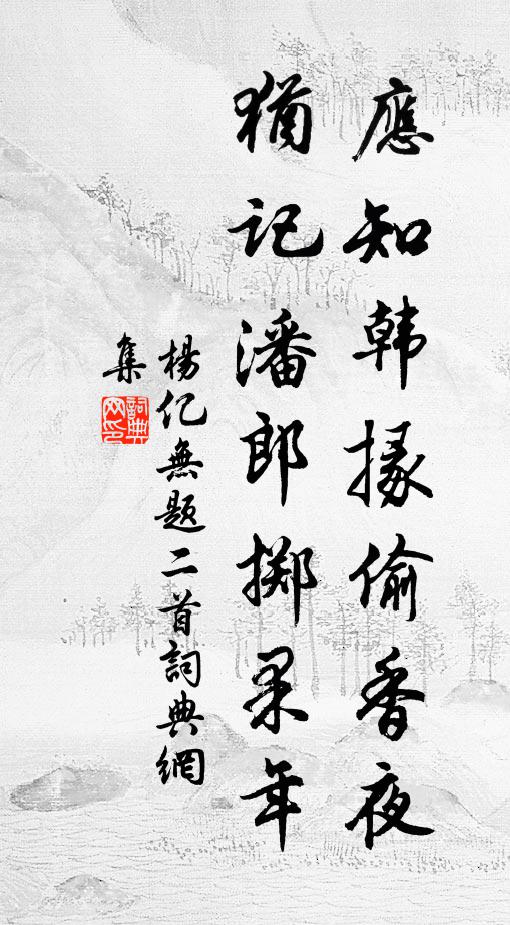 應知韓掾偷香夜
猶记潘郎掷果年
楊亿無题二首詞典網
集
詞典
网印